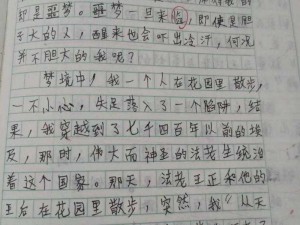 即是噩梦。噩梦一旦来临，即使是胆
子大的人，醒来也会吓出冷汗，何况
并不胆大的我呢？
梦境中，我一个人在花园里散步，
一不小心，失足落入了一个陷阱，结
果，我穿越到了七千四百年以前的埃
及，那时，伟大而神圣的法老王统治
着这个国家。那天，法老王正和他的
王后在花园里散步，突然，我"从天